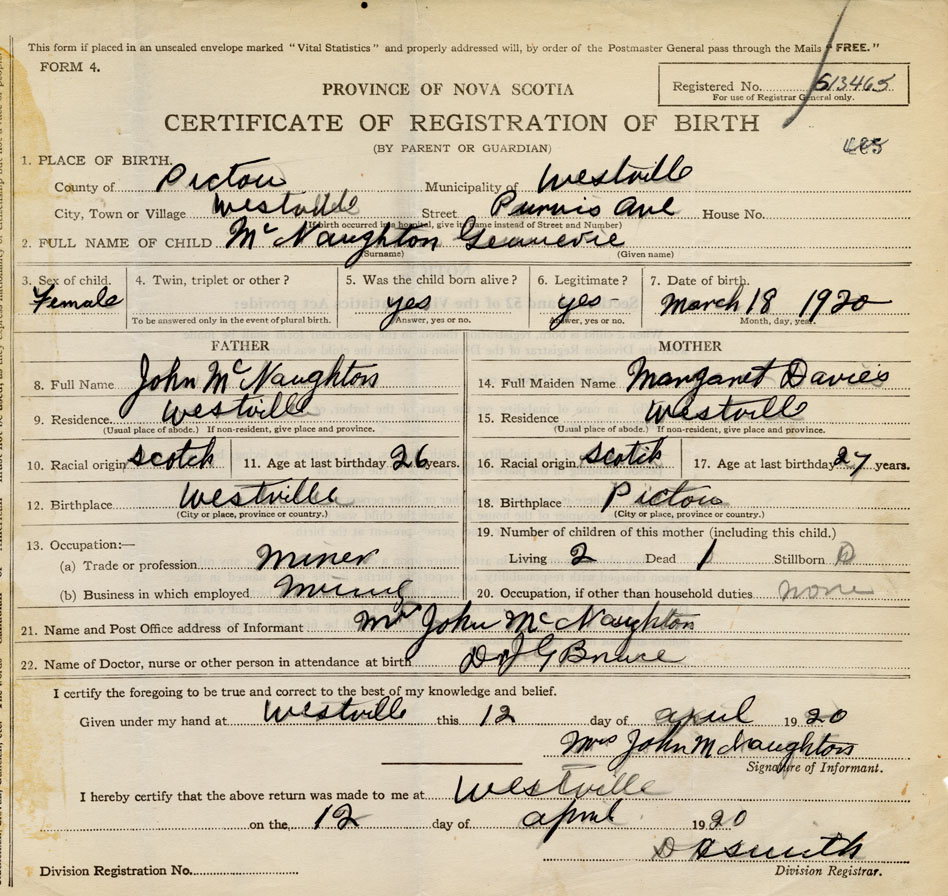 This form if placed in an unsealed envelope marked "Vital Statistics" and properly addressed will, by order of the Postmaster General pass through the Mails "FREE."
FORM 4.
Registered No. 513465
For use of Registrar General only.
PROVINCE OF NOVA SCOTIA
CERTIFICATE OF REGISTRATION OF BIRTH
(BY PARENT OR GUARDIAN)
1. PLACE OF BIRTH.
County of Pictou Municipality of Westville
City, Town or Village Westville Street Purvis Ave House No.
(If birth occurred in a hospital, give its name instead of Street and Number)
2. FULL NAME OF CHILD McNaughton Genevevie
(Surname) (Given name)
3. Sex of child. Female
4. Twin, triplet or other?
To be answered only in the event of plural birth.
5. Was the child born alive? yes
Answer, yes or no.
6. Legitimate? yes
Answer, yes or no.
7. Date of birth. March 18 1920
Month, day, year.
FATHER
8. Full Name John McNaughton
9. Residence Westville
(Usual place of abode.) If non-resident, give place and province.
10. Racial origin Scotch 11. Age at last birthday 26 years.
12. Birthplace Westville
(City or place, province or country.)
13. Occupation:—
(a) Trade or profession Miner
(b) Business in which employed Mining
MOTHER
14. Full Maiden Name Margaret Davies
15. Residence Westville
(Usual place of abode.) If non-resident, give place and province.
16. Racial origin Scotch 17. Age at last birthday 27 years.
18. Birthplace Pictou
(City or place, province or country.)
19. Number of children of this mother (including this child.)
Living 2 Dead 1 Stillborn 0
20. Occupation, if other than household duties none
21. Name and Post Office address of Informant Mrs John McNaughton
22. Name of Doctor, nurse or other person in attendance at birth Dr J G Bruce
I certify the foregoing to be true and correct to the best of my knowledge and belief.
Given under my hand at Westville this 12 day of april 1920
Mrs John McNaughton
Signature of Informant.
I hereby certify that the above return was made to me at Westville
on the 12 day of april 1920
Smith
Division Registration No. Division Registrar.